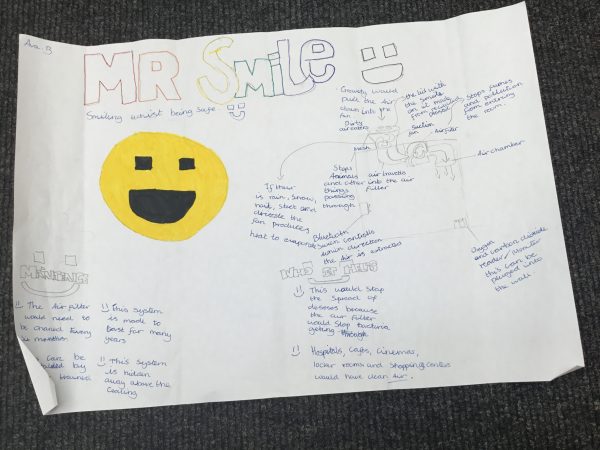 Ava. B
MR SMiLe
Smiling whilst being safe
Gravity would
pull the Air
down into the
fan
Dirty
air enters
the lid with
the smile
on it made
from recycled
plastic
Stops fumes
and pollution
from entering
the room.
Suction
fan
Air filter
Air chamber
Mesh
Stops
Animals
and other
things
passing
through
air travels
into the air
filter
If their
is rain, snow,
hail, sleet and
the
fan produces
heat to evaporate
Bluetooth
controls
which direction
the Air is extracted
Oxygen
and carbon dioxide
reader/Monitor
this can be
plugged into
the wall
The Air filter
would need to
be changed Every
This system
is made to
last for many
years
can be
by
This system
is hidden
away above the
Ceiling
WHO IT HELPS
This would stop
the spread of
because
the air filter
would stop bacteria
getting through
Hospitals, Cafes, Cinemas,
locker rooms and Shopping centers
would have clean Air.